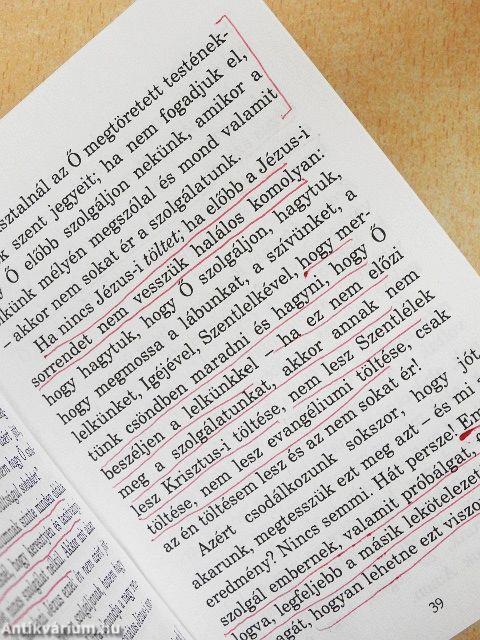 az Ő megtöretett testének-
szent jegyeit; ha nem fogadjuk el,
Ő előbb szolgáljon nekünk, amikor a
mélyen megszólal és mond valamit
– akkor nem sokat ér a szolgálatunk.
Ha nincs Jézus-i töltet; ha előbb a Jézus-i
sorrendet nem vesszük halálos komolyan:
hogy hagytuk, hogy Ő szolgáljon, hagytuk,
hogy megmossa a lábunkat, a szívünket, a
lelkünket, Igéjével, Szentlelkével, hogy mer-
tünk csöndben maradni és hagyni, hogy Ő
beszéljen a lelkünkkel – ha ez nem előzi
meg a szolgálatunkat, akkor annak nem
lesz Krisztus-i töltése, nem lesz Szentlélek
töltése, nem lesz evangéliumi töltése, csak
az én töltésem lesz és az nem sokat ér!
Azért csodálkozunk sokszor, hogy jót
akarunk, megtesszük ezt meg azt – és mi
eredmény? Nincs semmi. Hát persze!
szolgál embernek, valamit próbálgat,
legfeljebb a másik
hogyan lehetne ezt
39
Antikvárium.hu